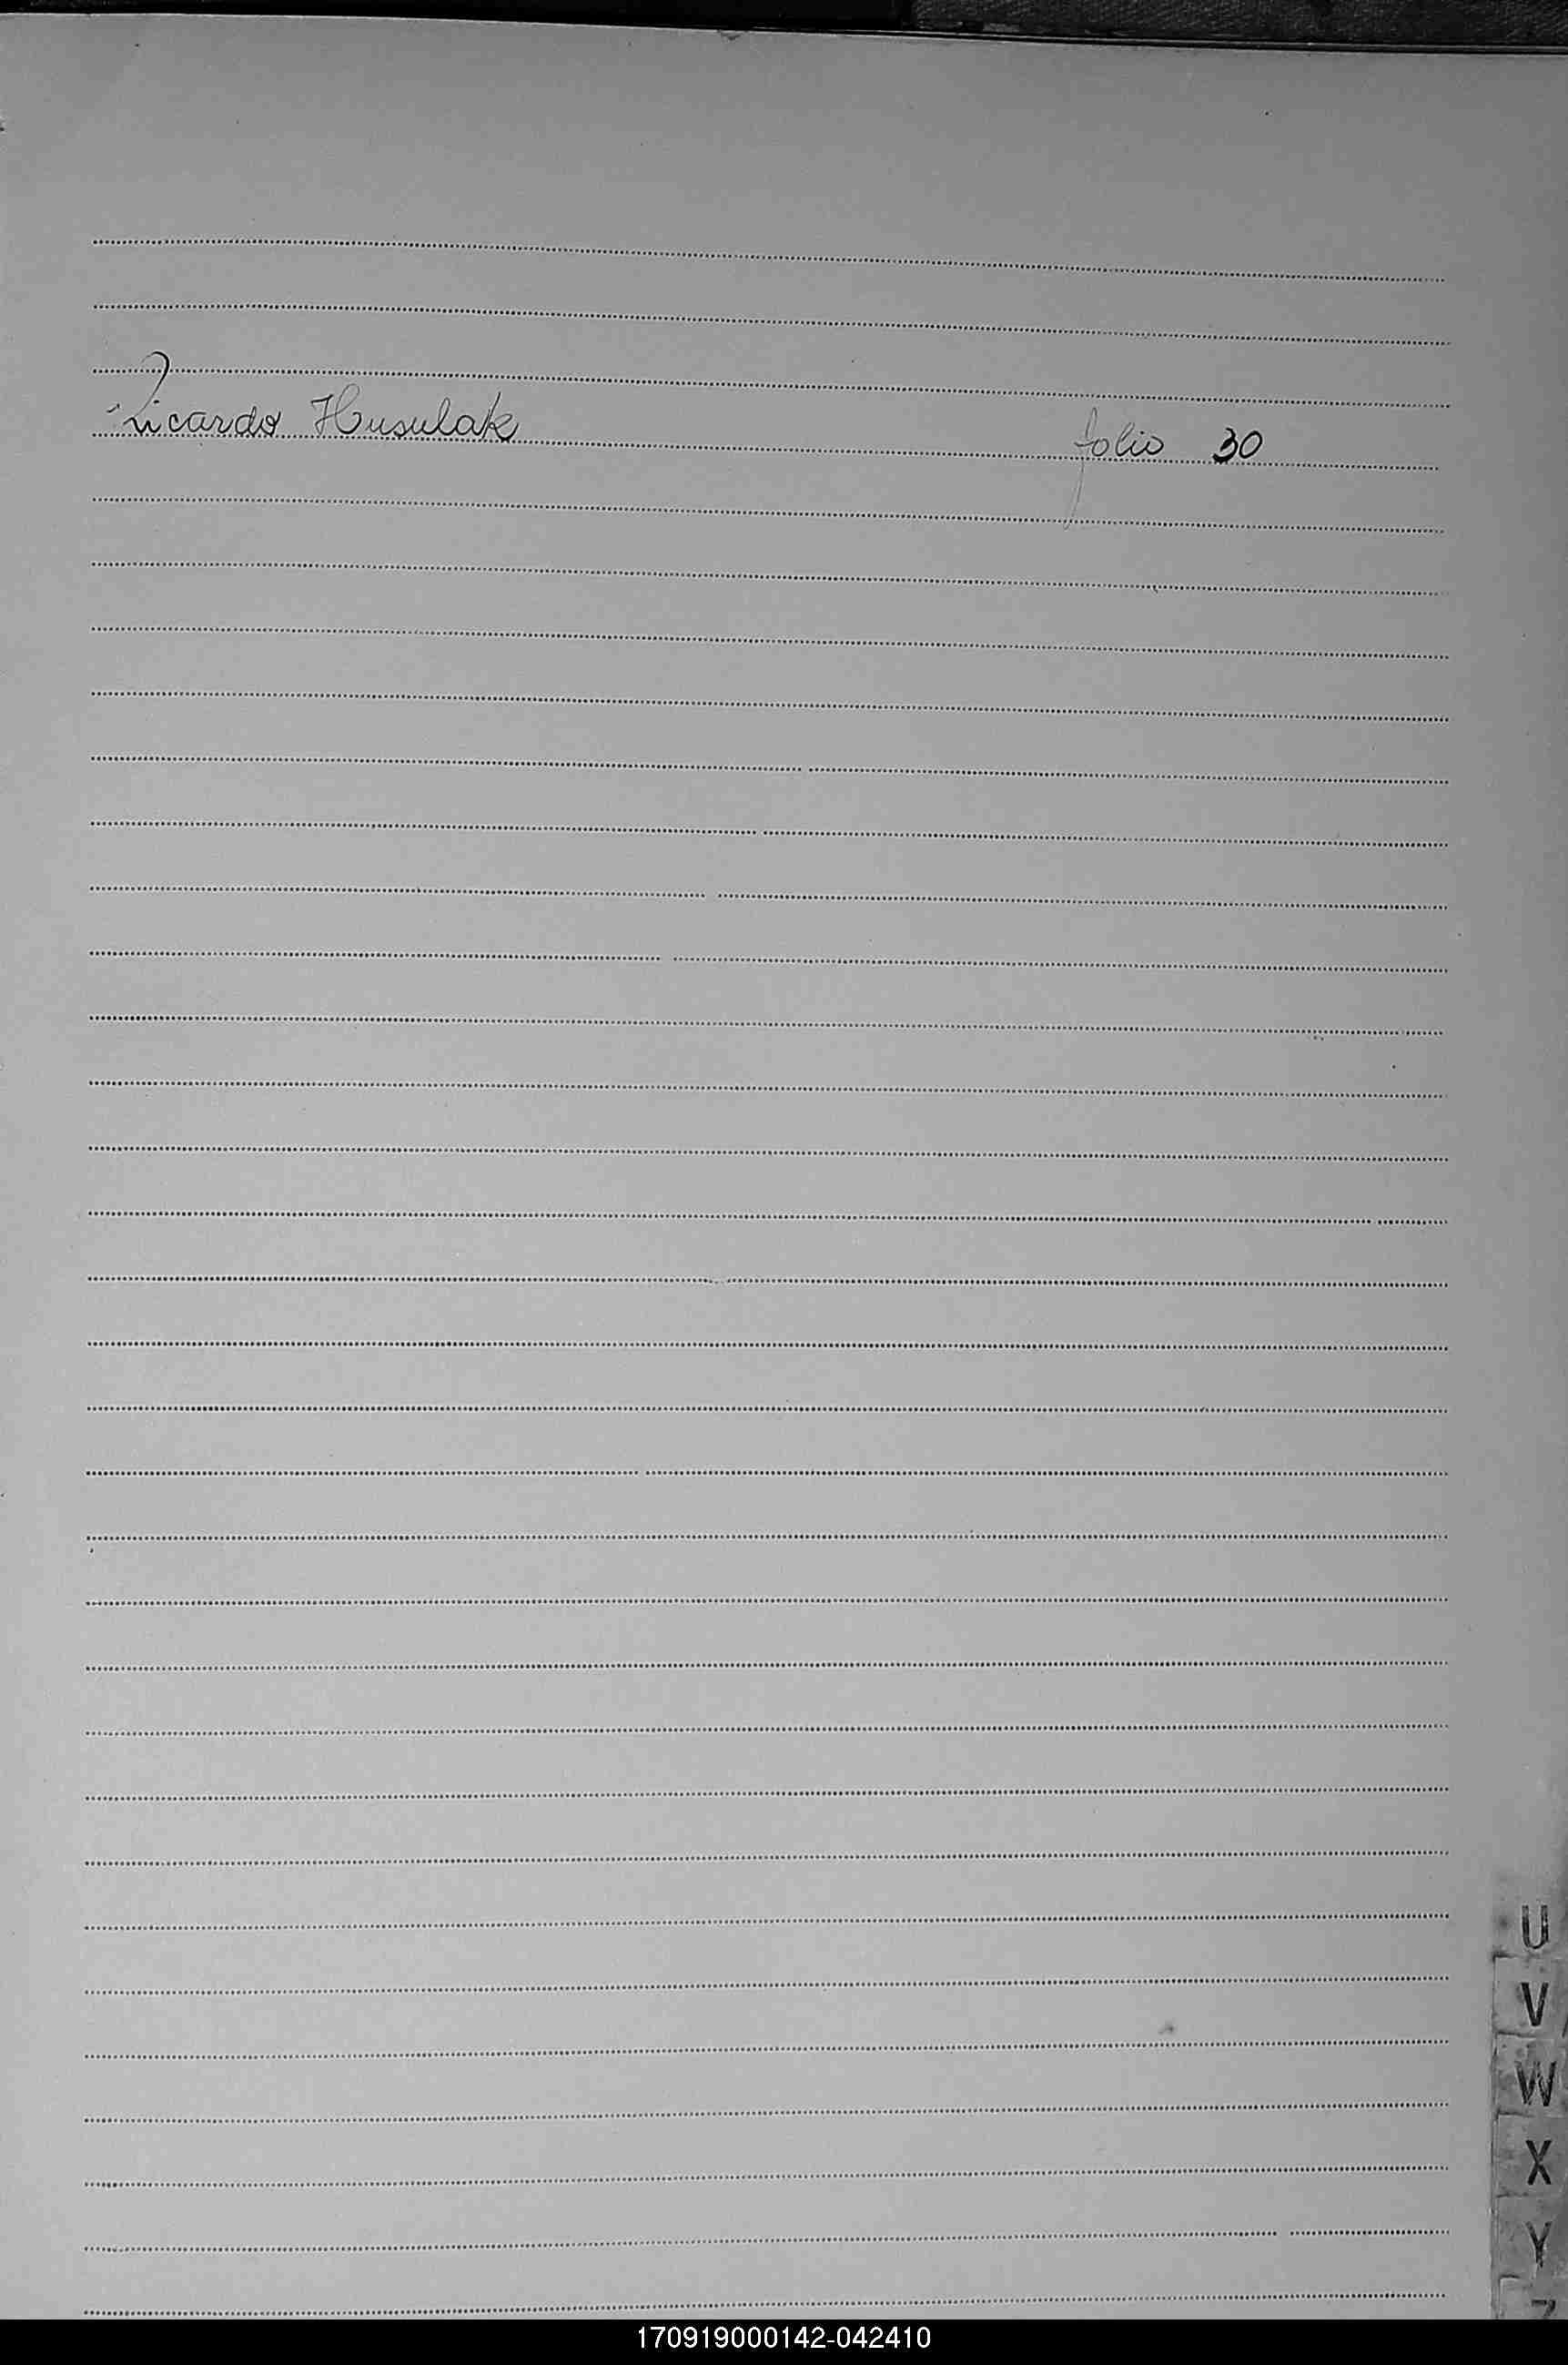 Ricardo Husulak folio 30
U
V
W
X
Y
Z
170919000142-042410